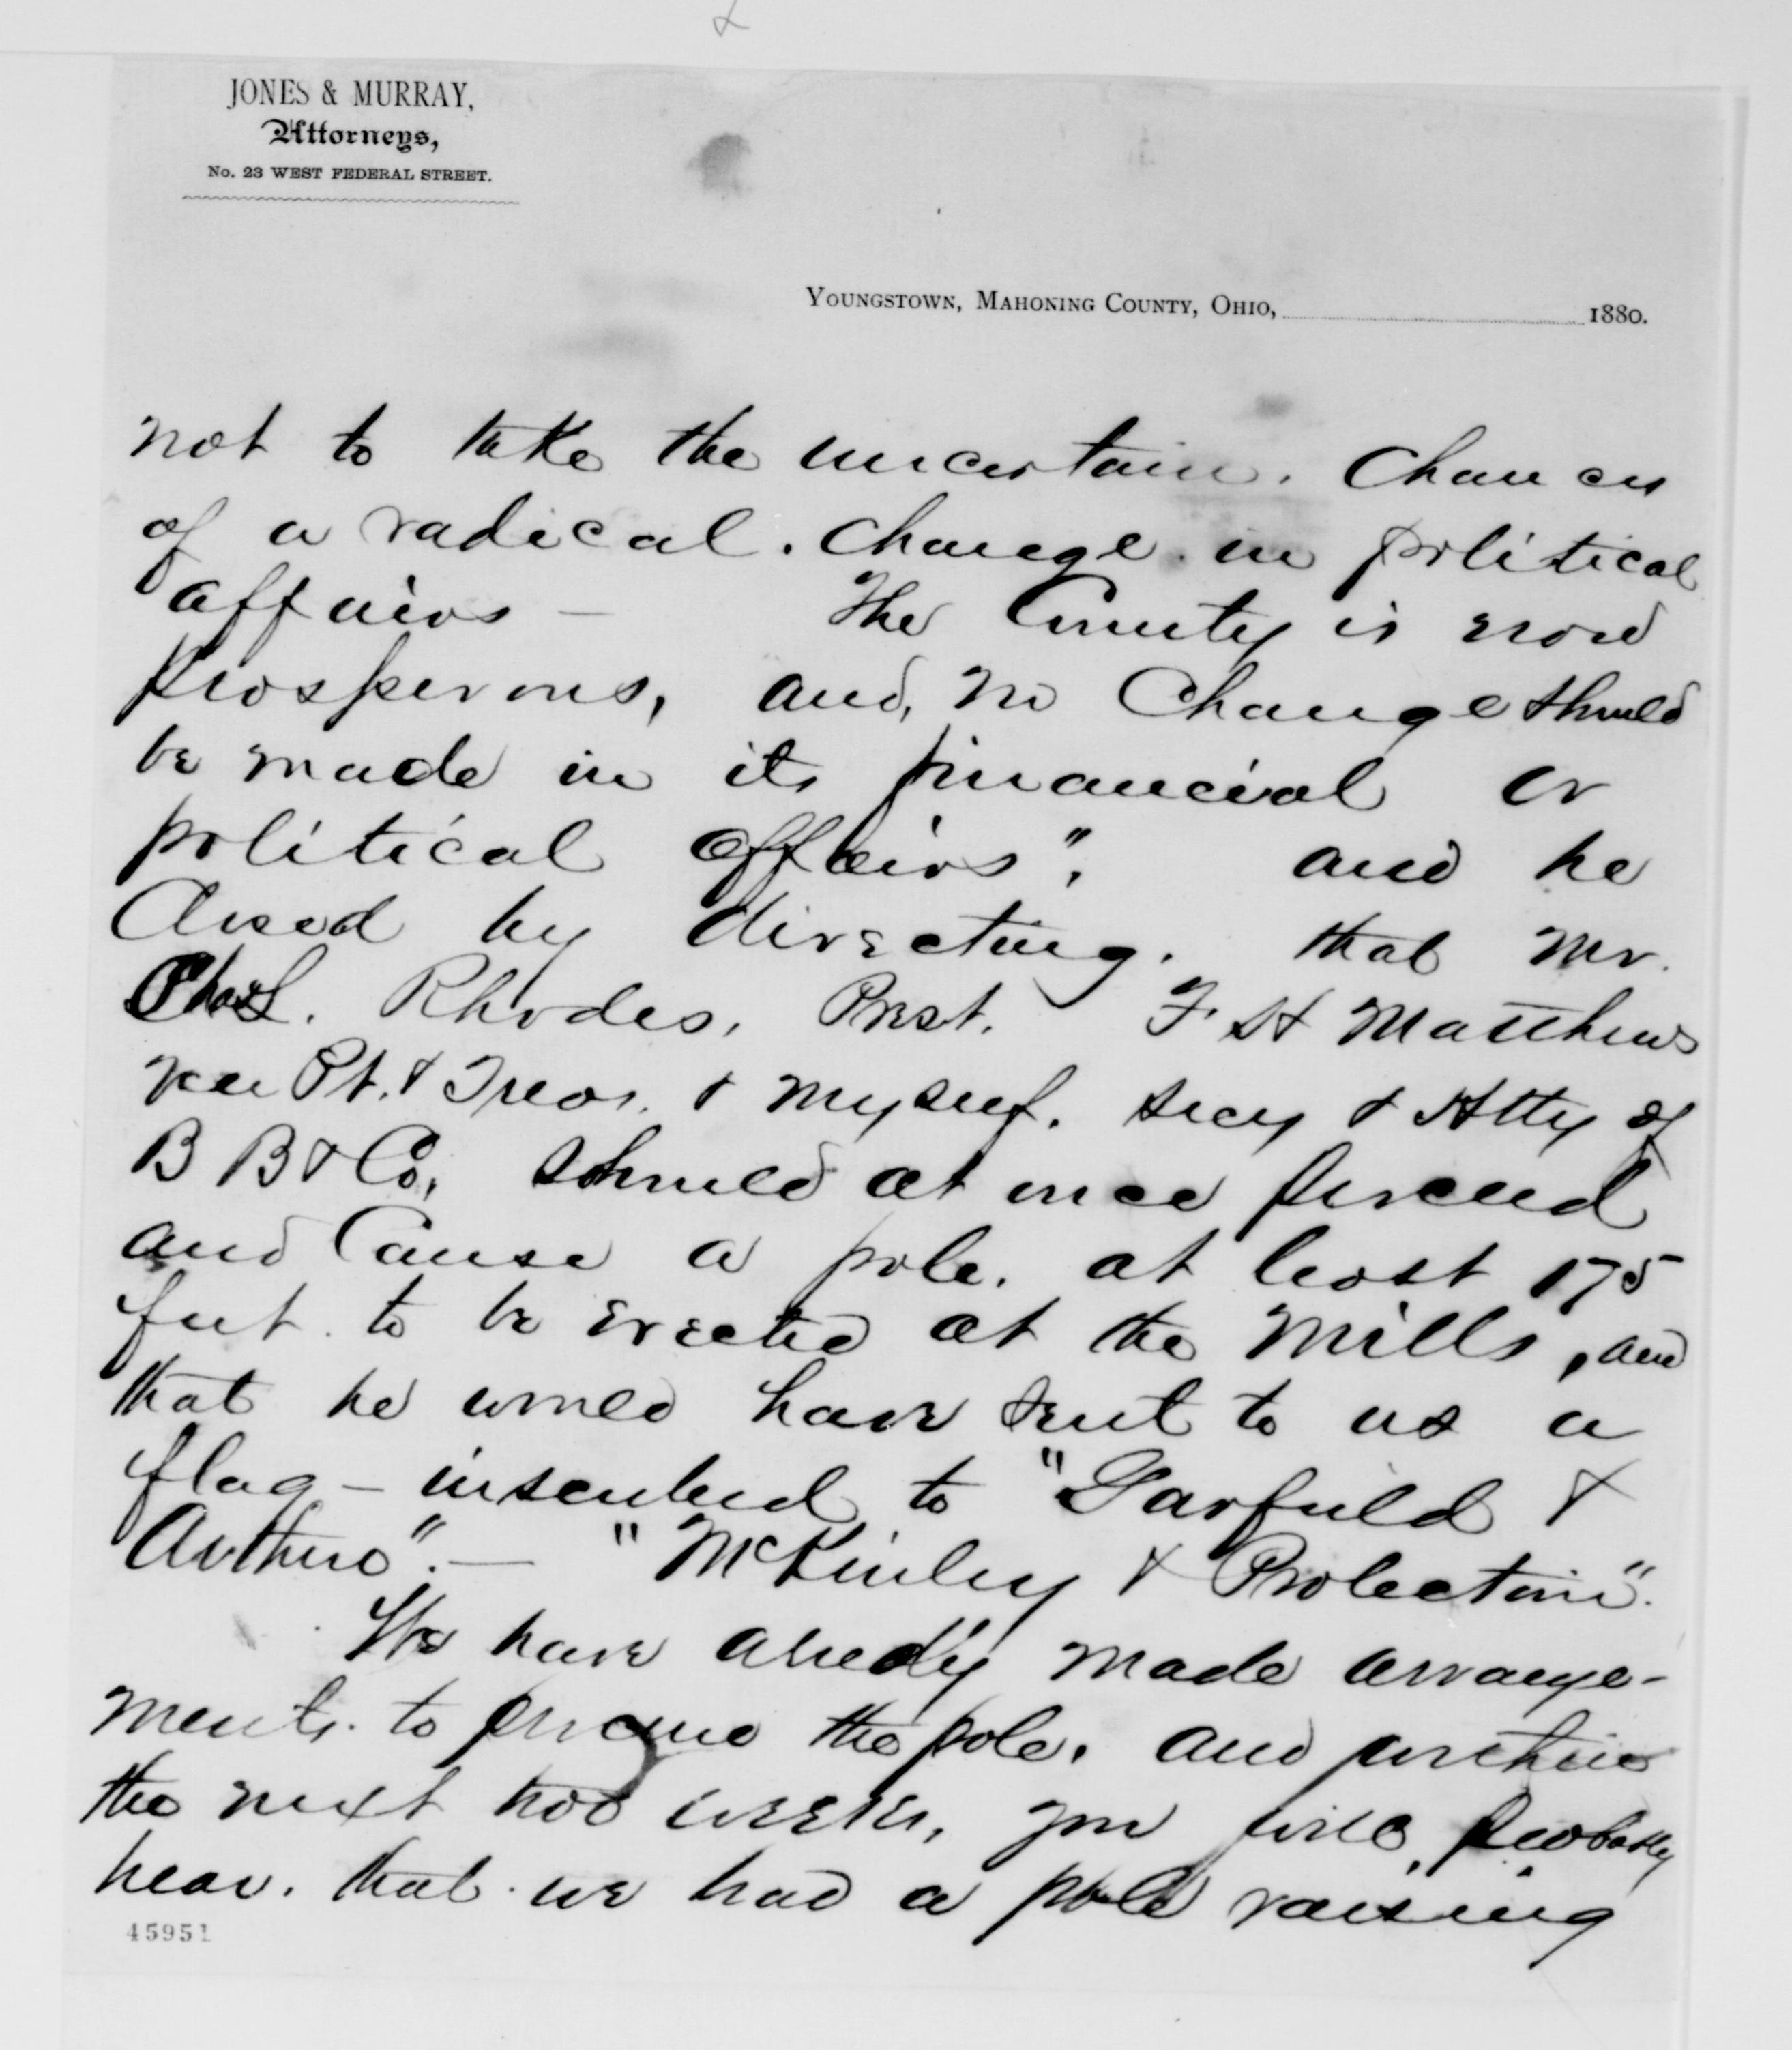 JONES & MURRAY,
Attorneys,
No. 23 WEST FEDERAL STREET.
YOUNGSTOWN, MAHONING COUNTY, OHIO, 1880.
not to take the uncertain. Chances
of a radical. Change in political
affairs — The County is now
prosperous, and, no Change should
be made in its financial or
political affairs". and he
Closed by directing. that Mr.
Chas L. Rhodes, Prest. F. H Matthews
vice Pt. & Treas. & myself. Secy & Atty of
B B & Co. should at once proceed
and Cause a pole. at least 175
feet. to be erected at the Mills, and
that he would have sent to us a
flag – inscribed to "Garfield &
Arthur". — "McKinley & Protection".
We have already made arrange-
ments. to procure the pole. and within
the next two weeks, you will probably
hear. that we had a pole raising
45951